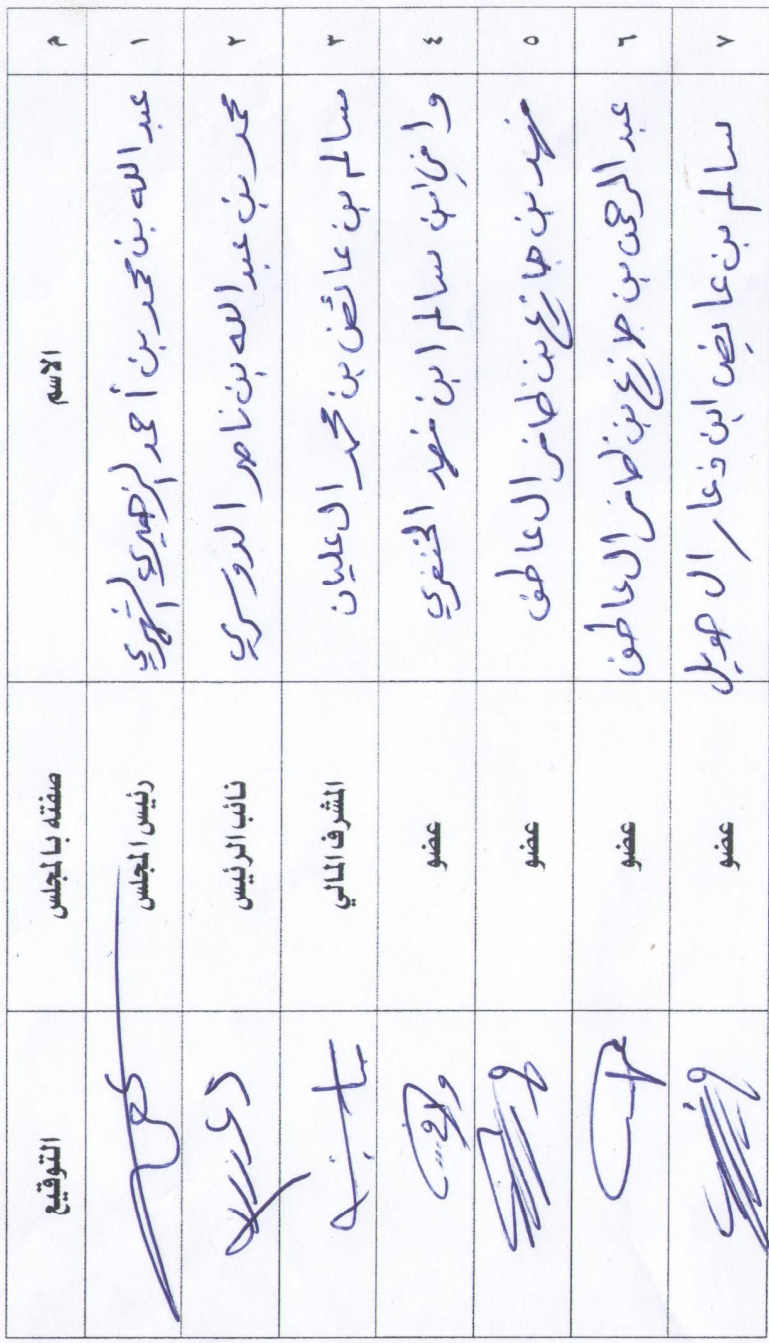 م الاسم صفته بالمجلس التوقيع
١ عبد الله بن محمد بن أحمد الشهري رئيس المجلس
٢ محمد بن عبدالله بن ناصر الدوسري نائب الرئيس
٣ سالم بن عائض بن محمد ال عليان المشرف المالي
٤ سالم ابن فهد الخنفري عضو
٥ فهد بن جازع بن ظافر ال عاطف عضو
٦ عبد الرحمن بن جازع بن ظافر ال عاطف عضو
٧ سالم بن عايض ابن دعار ال صويل عضو